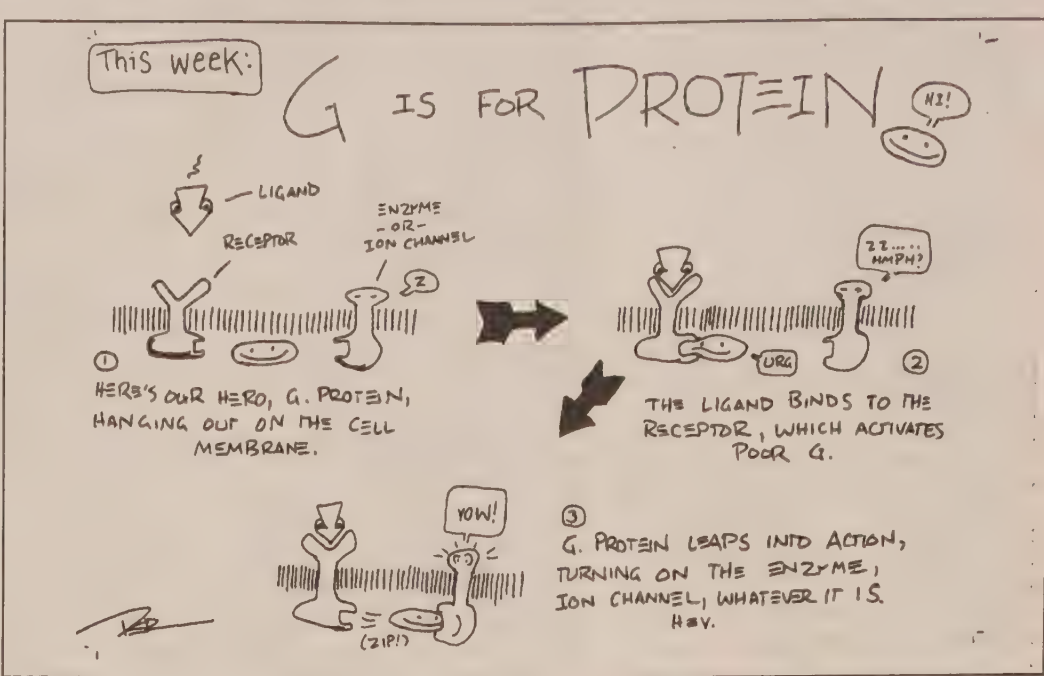 This week:
G IS FOR PROTEIN
HI!
LIGAND
RECEPTOR
ENZYME
-OR-
ION CHANNEL
Z
①
HERE'S OUR HERO, G. PROTEIN,
HANGING OUT ON THE CELL
MEMBRANE.
ZZ.....
HMPH?
URG
②
THE LIGAND BINDS TO THE
RECEPTOR, WHICH ACTIVATES
POOR G.
YOW!
(ZIP!)
③
G. PROTEIN LEAPS INTO ACTION,
TURNING ON THE ENZYME,
ION CHANNEL, WHATEVER IT IS.
HEY.